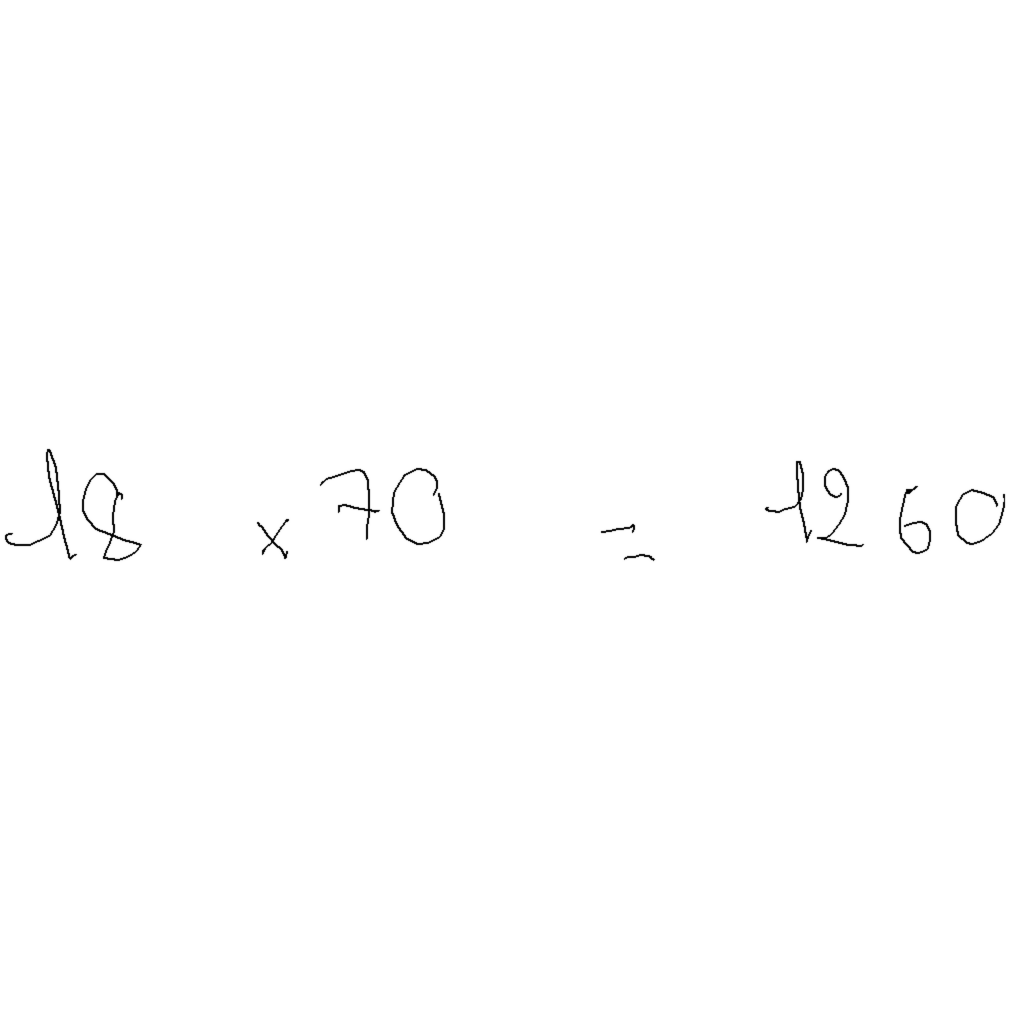 18 x 70 = 1260